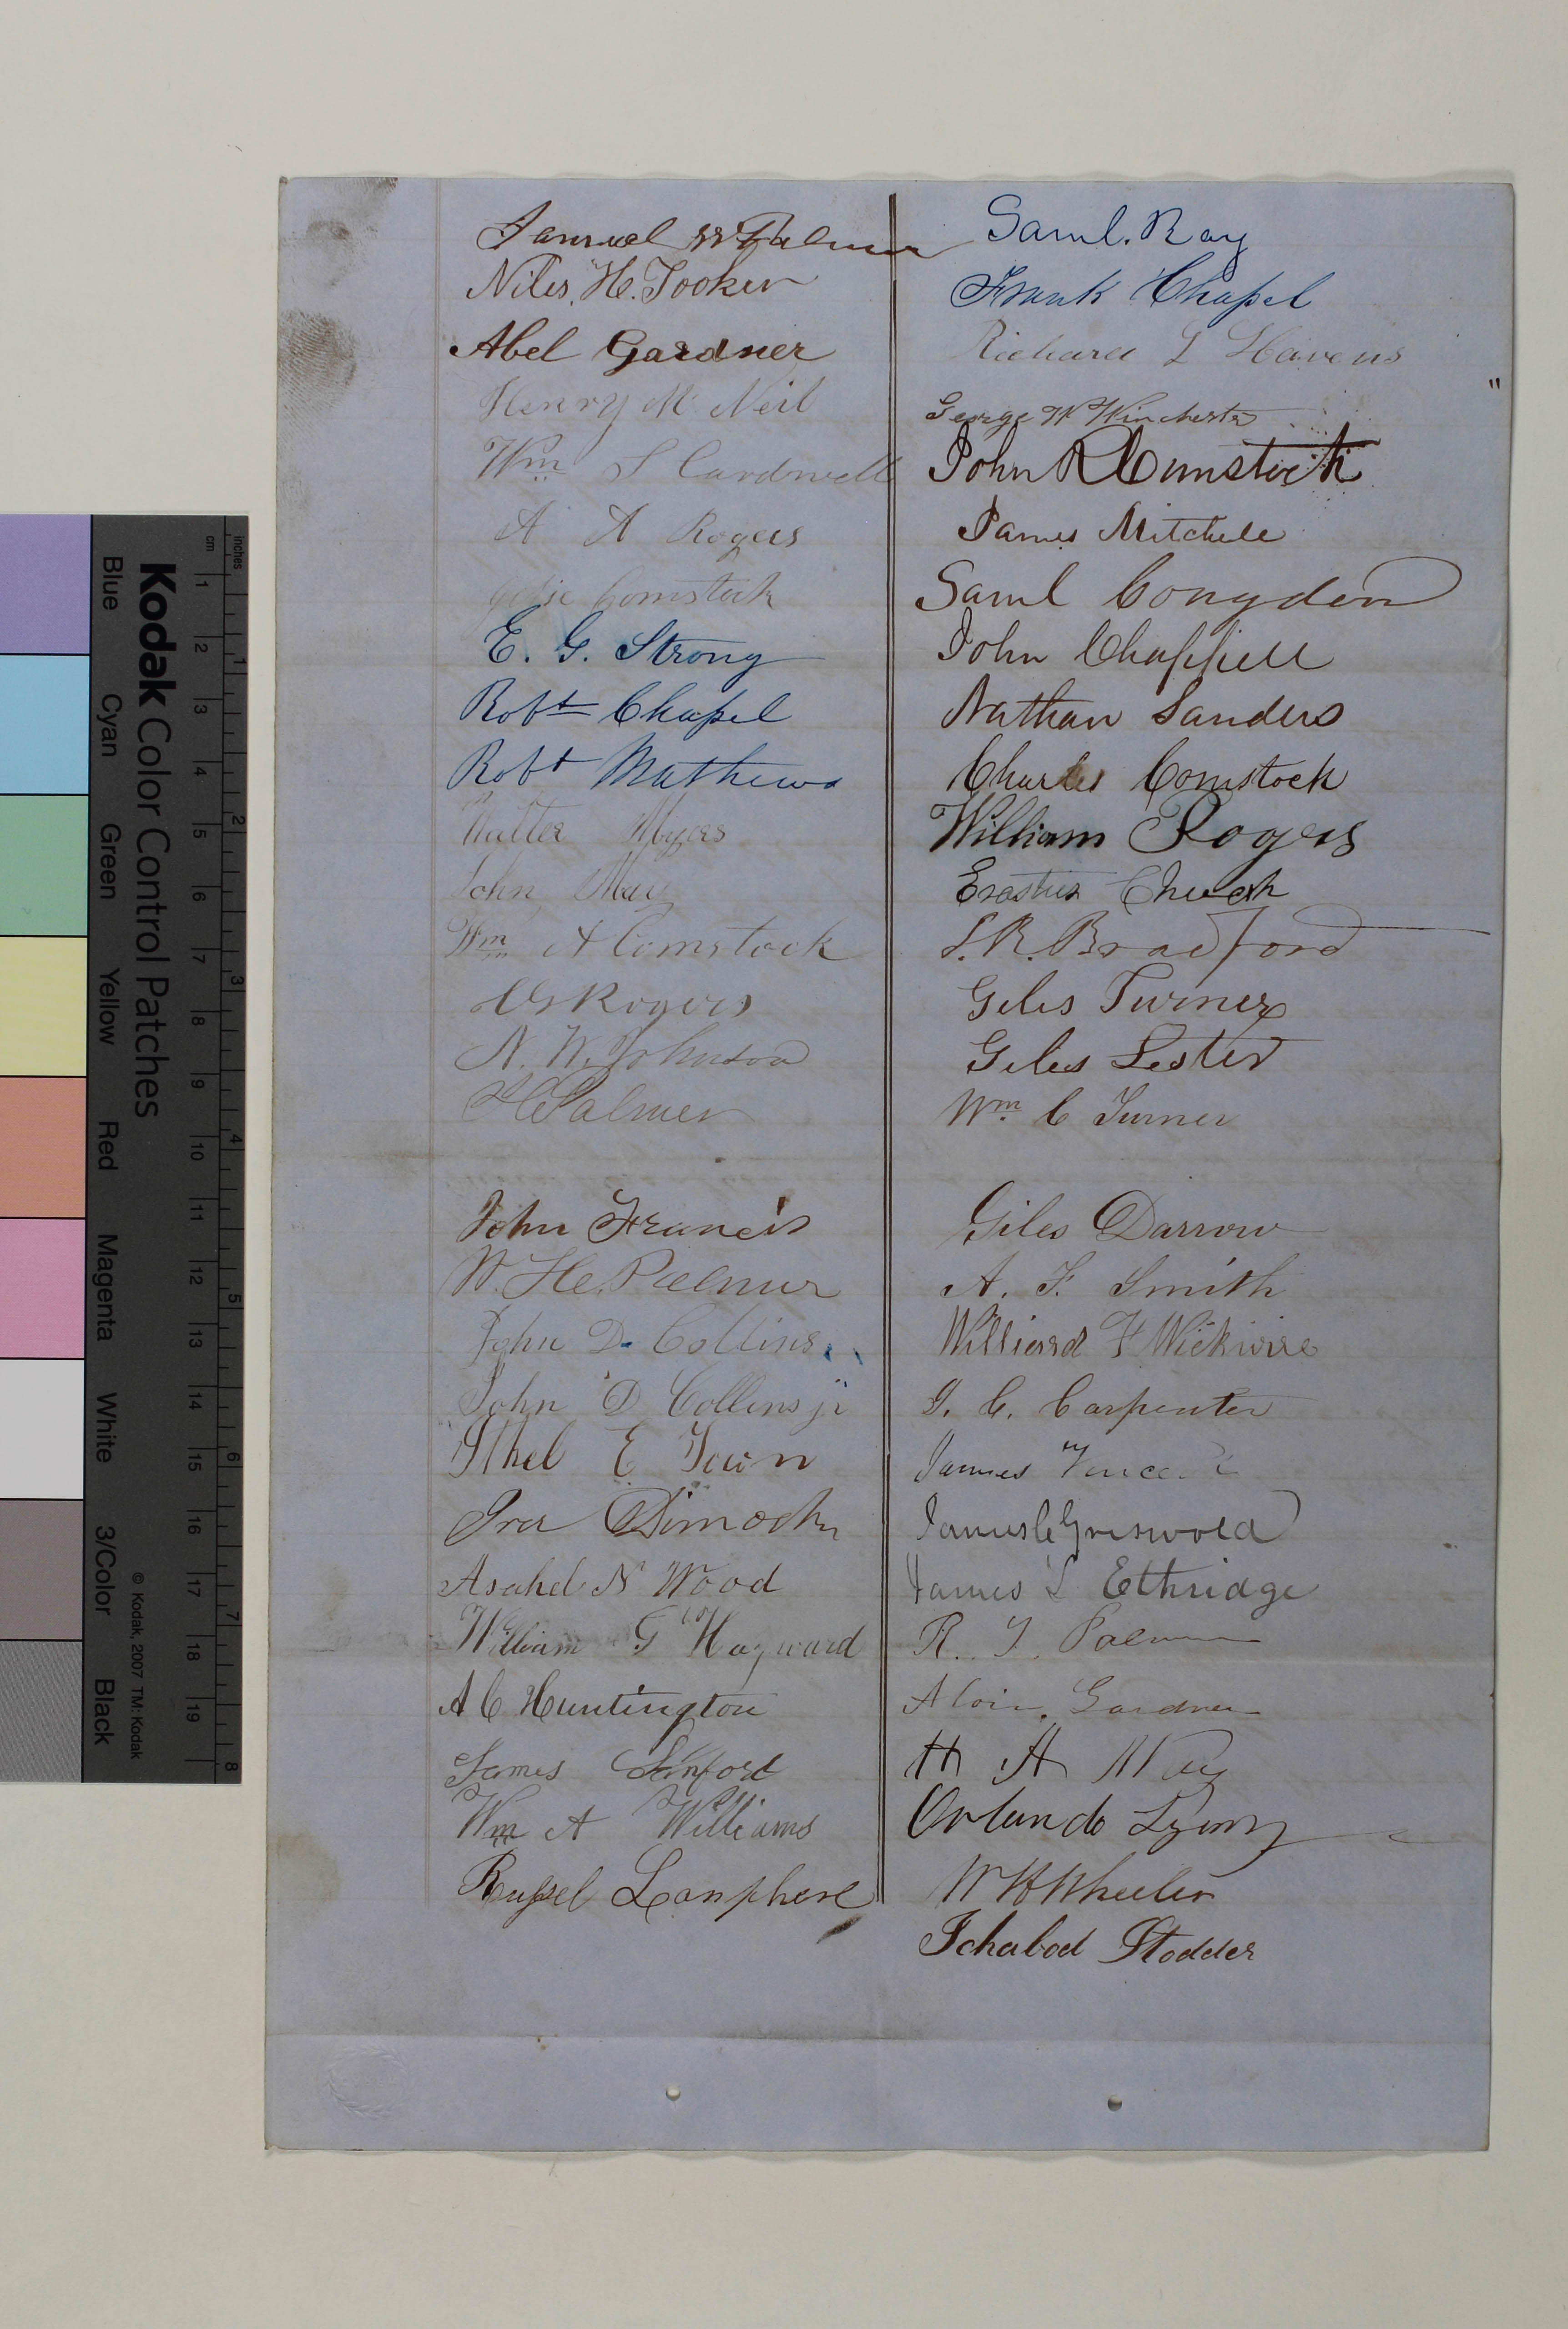 Samuel W Palmer
Niles. H. Tooker
Abel Gardner
Henry Mc Neil
Wm S Cardwell
A A Rogers
Comstock
E. G. Strong
Robt Chapel
Robt Mathews
Myers
John May
Wm A Comstock
Rogers
N. W. Johnson
Palmer
John Francis
W. H. Palmer
John D. Collins
John D Collins jr
Ethel E Town
Ira Dimock
Asahel N Wood
William G Hayward
A C Huntington
James Sanford
Wm A Williams
Russel Lanphere
Saml. Ray
Frank Chapel
Richard L Havens
George W Winchester
John R Comstock
James Mitchell
Saml Congdon
John Chappell
Nathan Sanders
Charles Comstock
William Rogers
Erastus Church
S. R. Bradford
Giles Turner
Giles Lester
Wm C Turner
Giles Darrow
A. F. Smith
Williard F Wickwire
G. C. Carpenter
James
James C Griswold
James L Ethridge
R. T. Palmer
Gardner
H A Way
Orlando
W H Wheeler
Ichabod Stodder
inches
cm
1 2 3 4 5 6 7 8
1 2 3 4 5 6 7 8 9 10 11 12 13 14 15 16 17 18 19
Kodak Color Control Patches
© Kodak, 2007 TM: Kodak
Blue Cyan Green Yellow Red Magenta White 3/Color Black